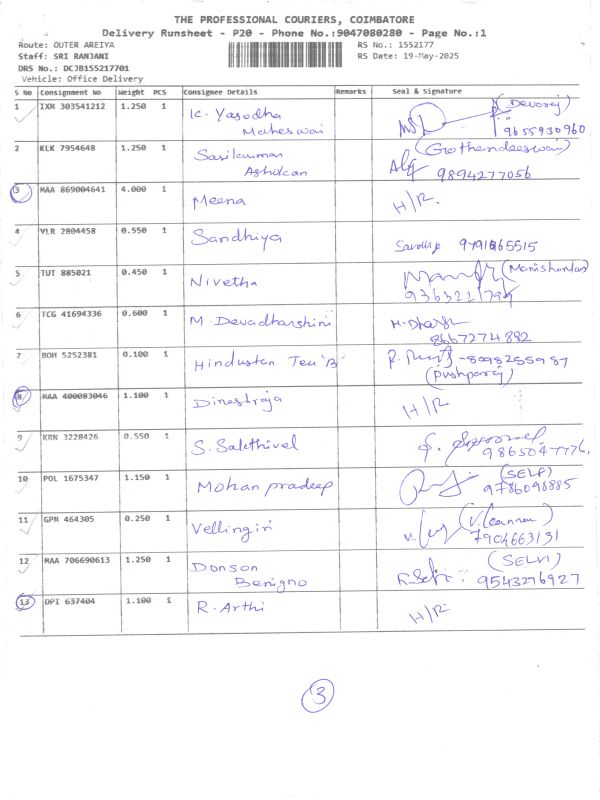 THE PROFESSIONAL COURIERS, COIMBATORE
Delivery Runsheet - P20 - Phone No.:9047080280 - Page No.:1
Route: OUTER AREIYA RS No.: 1552177
Staff: SRI RANJANI RS Date: 19-May-2025
DRS No.: DCJB155217701
Vehicle: Office Delivery
S No Consignment No Weight PCS Consignee Details Remarks Seal & Signature
1 IXM 303541212 1.250 1 K. Yasodha (Devaraj)
Maheswari 9655930960
2 KLK 7954648 1.250 1 Sasikumar
Ashokan 9894277056
3 MAA 869004641 4.000 1 Meena H/R.
4 VLR 2804458 0.550 1 Sandhiya
5 TUT 885021 0.450 1 Nivetha
6 TCG 41694336 0.600 1 M. Devadharshini
8667274882
7 BOM 5252381 0.100 1 Hindustan Tea 'B'
(Pushparaj)
8 MAA 400083046 1.100 1 Dineshraja H/R
9 KRN 3228426 0.550 1 S. Sakthivel
9865047776.
10 POL 1675347 1.150 1 Mohan pradeep (SELF)
9786098885
11 GPM 464305 0.250 1 Vellingiri
7904663131
12 MAA 706690613 1.250 1 Donson (SELVI)
Benigno 9543276927
13 DPI 637404 1.100 1 R. Arthi H/R
3